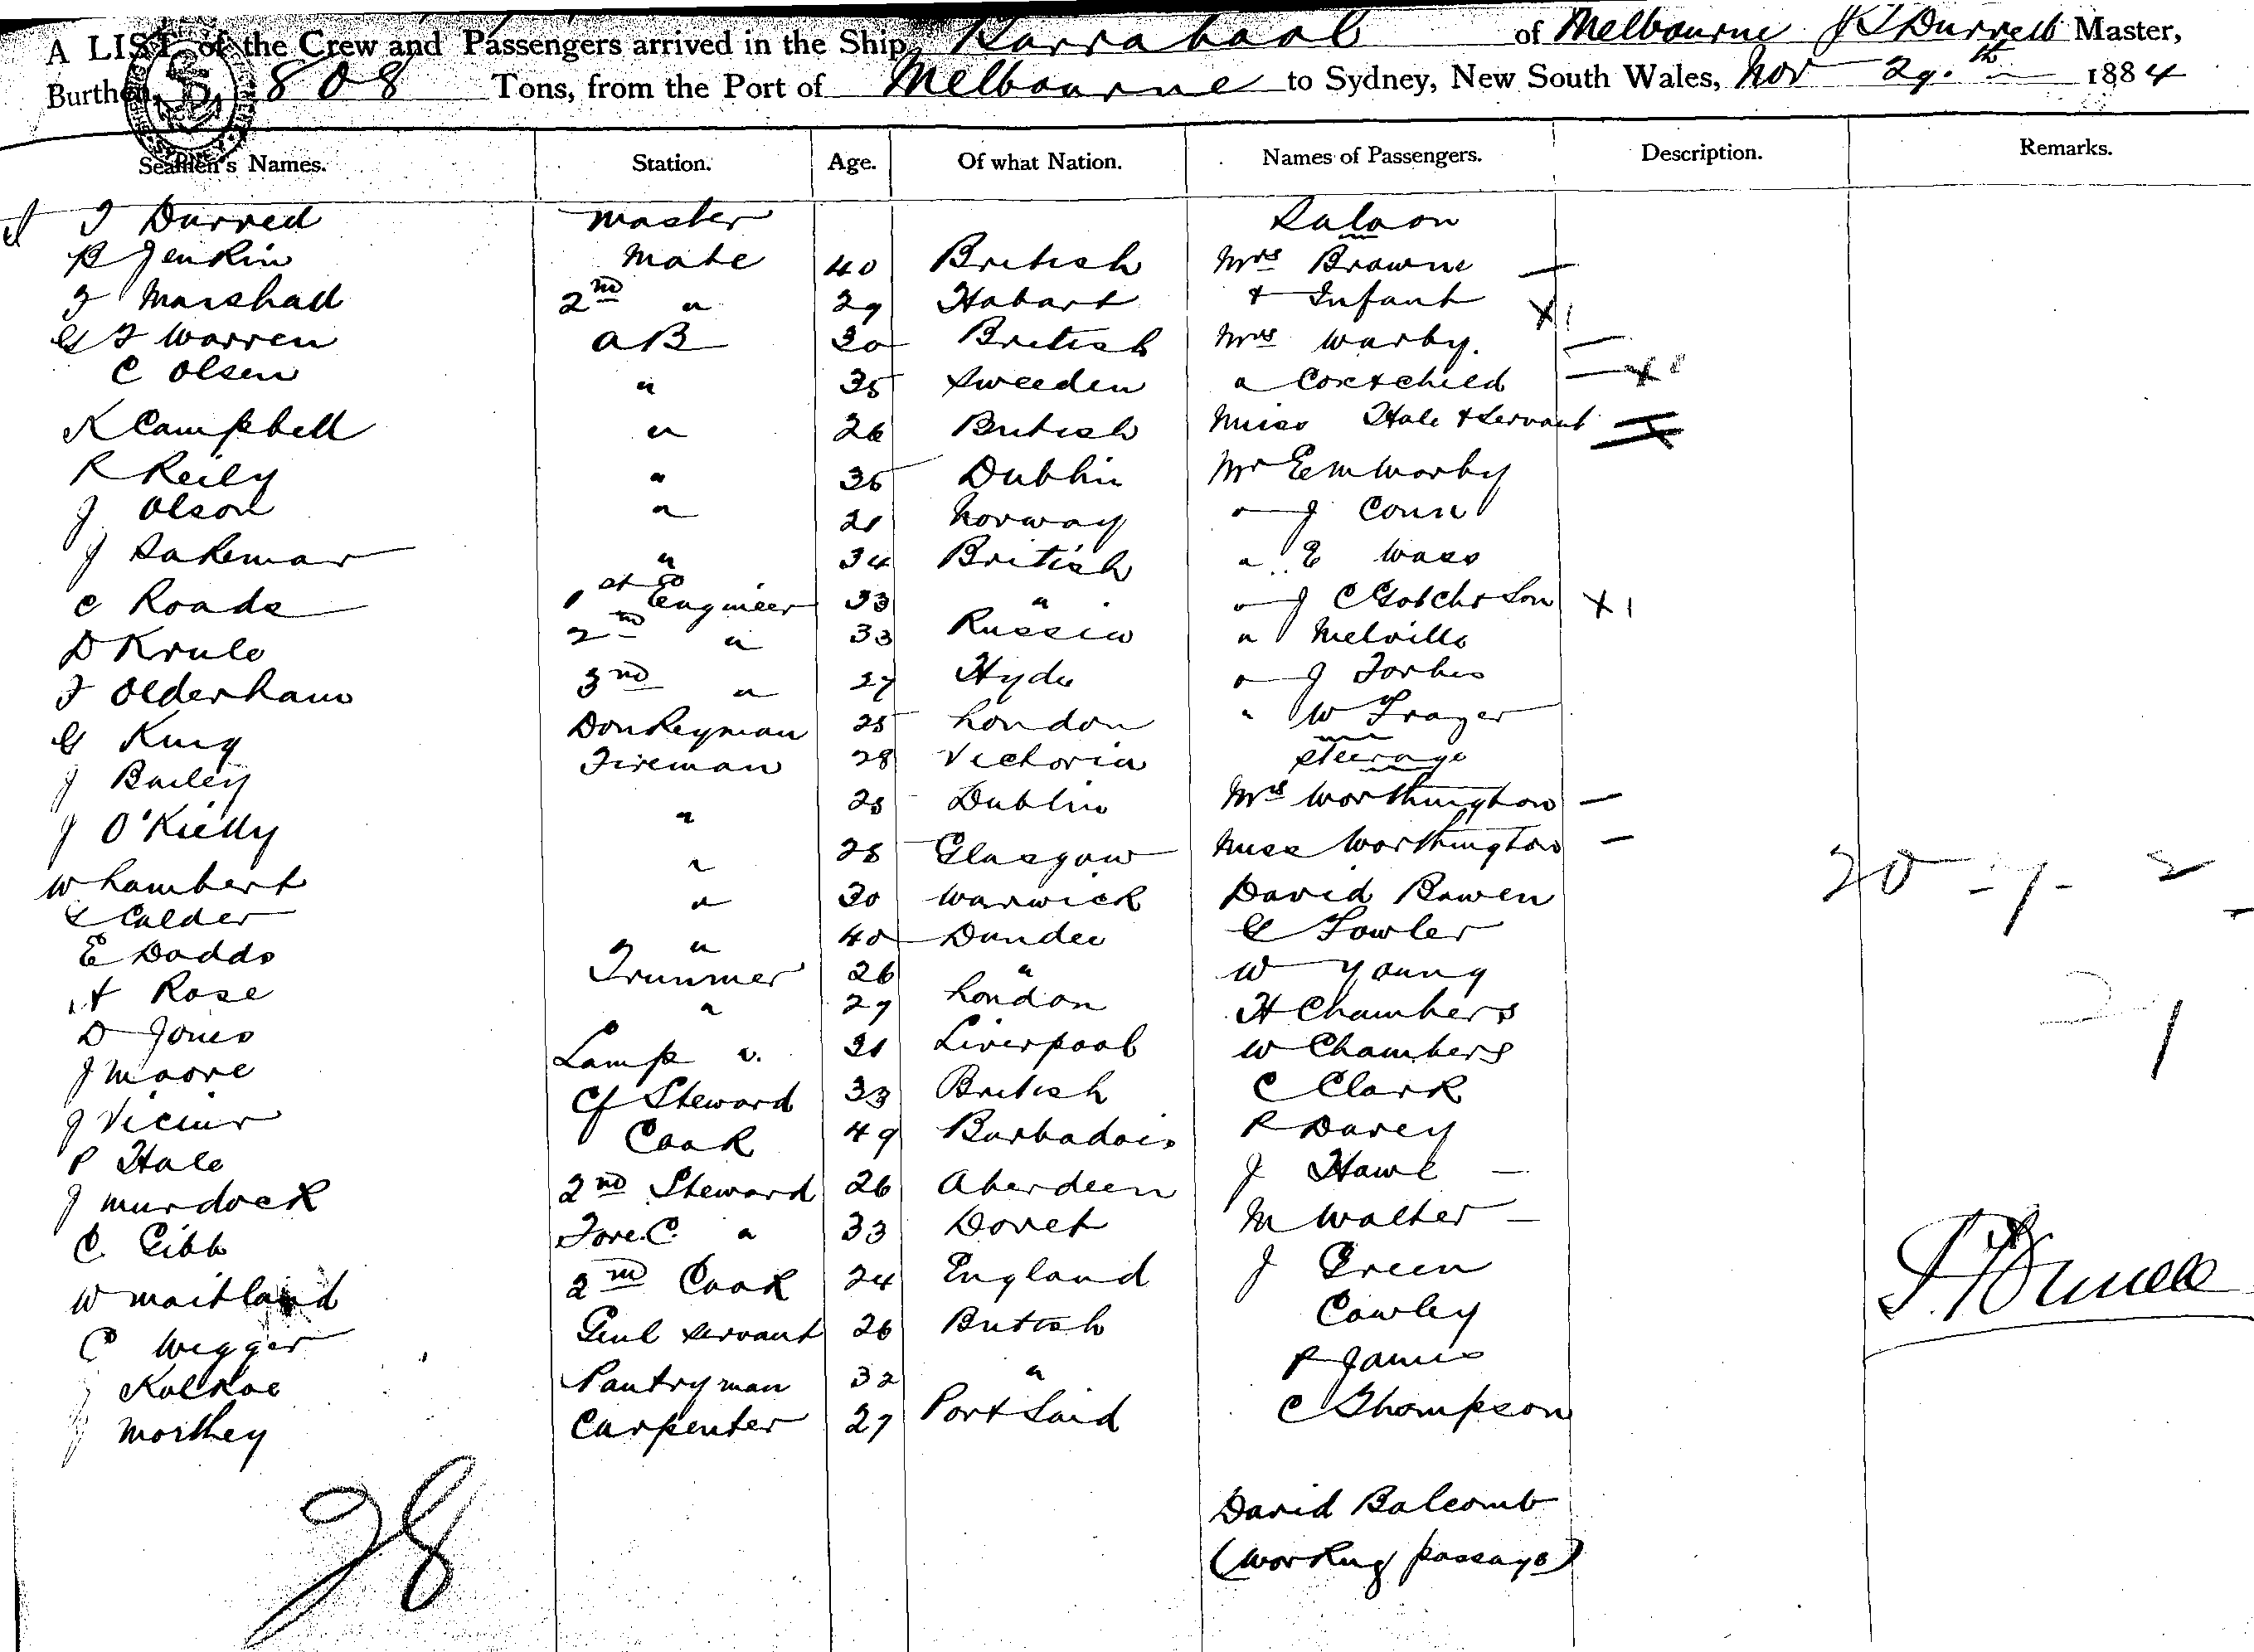 A LIST of the Crew and Passengers arrived in the Ship Karrabool of Melbourne Master,
Burthen 808 Tons, from the Port of Melbourne to Sydney, New South Wales, Nov 29.th 1884
Seamen's Names. Station. Age. Of what Nation. Names of Passengers. Description. Remarks.
Master Saloon
Jenkin Mate 40 British Mrs Browne —
Marshall 2nd " 29 Hobart + Infant X1
Warren AB 30 British Mrs Warby. —
C Olsen " 35 Sweeden " Cox + child — X
K Campbell " 26 British Miss Hale + Servant
R Reily " 35 Dublin Mr E M Warby
J Olson " 21 Norway " J
J Sakemar " 34 British " E Wass
C Roads 1st Engineer 33 " " J + Son X1
D 2nd " 33 Russia " Melville
3rd " 27 Hyde " J Forbes
G King Donkeyman 25 London " W
J Bailey Fireman 28 Victoria Steerage
J O'Kielly " 28 Dublin Mrs Worthington —
W Lambert " 28 Glasgow Miss Worthington —
Calder " 30 Warwick David Bowen 20 - 7 - 2
E Dodds " 40 Dundee G Fowler
Rose Trimmer 26 " W Young
D Jones " 27 London H Chambers 21
J Moore Lamp " 21 Liverpool W Chambers
J Cf Steward 33 British C Clark
P Hale Cook 49 Barbadois R Davey
J Murdock 2nd Steward 26 Aberdeen J Hawe —
C Gibb Fore.C. " 33 Dovet M Walter —
W Maitland 2nd Cook 24 England J Green
C Wigger Genl Servant 26 British Cowley
J Pantryman 32 " P James
J Morthey Carpenter 27 Port Said C Thompson
28
David Balcomb
(Working passage)